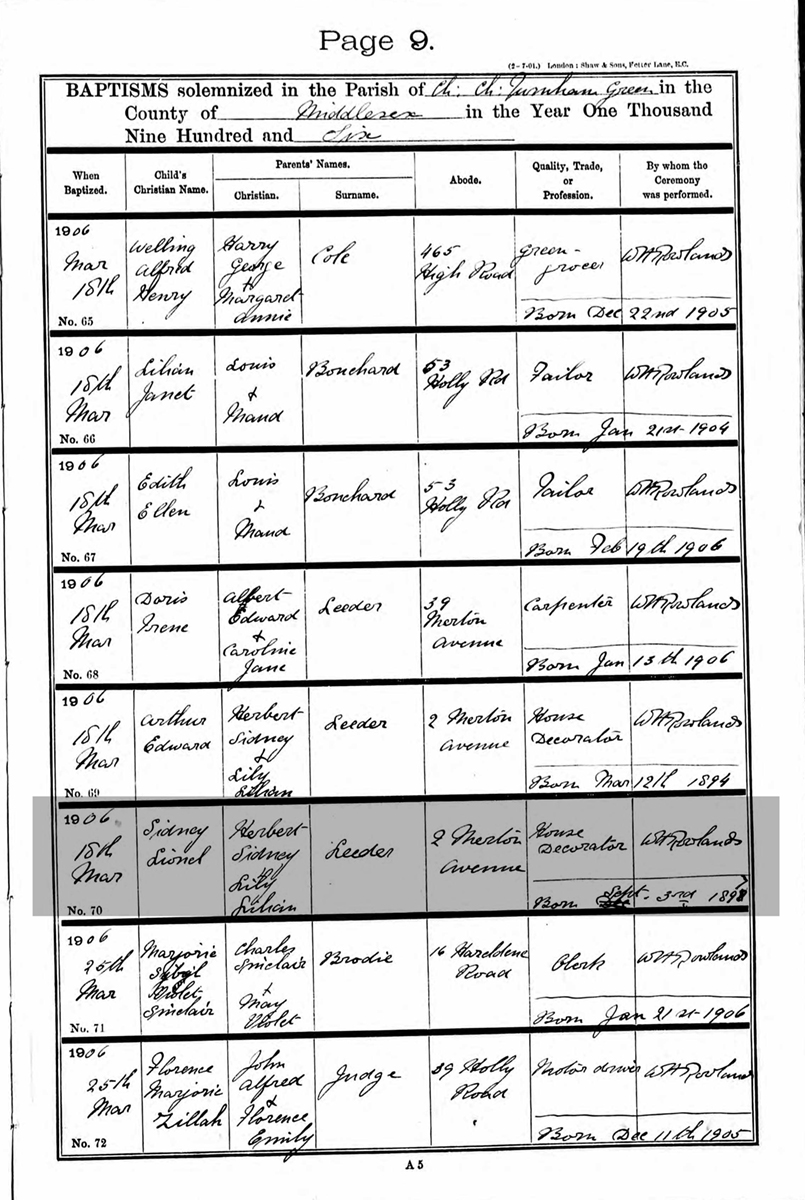 Page 9.
(2-7-01.) London: Shaw & Sons, Fetter Lane, E.C.
BAPTISMS solemnized in the Parish of Ch: Ch: Turnham Green in the
County of Middlesex in the Year One Thousand
Nine Hundred and Six
When Baptized.
Child's Christian Name.
Parents' Names.
Christian.
Surname.
Abode.
Quality, Trade, or Profession.
By whom the Ceremony was performed.
1906
Mar
18th
No. 65
Welling
Alfred
Henry
Harry
George
+
Margaret
Annie
Cole
465
High Road
Green-
grocer
Born Dec 22nd 1905
WHRowlands
1906
18th
Mar
No. 66
Lilian
Janet
Louis
+
Maud
Bonchard
53
Holly Rd
Tailor
Born Jan 21st 1904
WHRowlands
1906
18th
Mar
No. 67
Edith
Ellen
Louis
+
Maud
Bonchard
53
Holly Rd
Tailor
Born Feb 19th 1906
WHRowlands
1906
18th
Mar
No. 68
Doris
Irene
Albert
Edward
+
Caroline
Jane
Leeder
39
Merton
Avenue
Carpenter
Born Jan 13th 1906
WHRowlands
1906
18th
Mar
No. 69
Arthur
Edward
Herbert
Sidney
+
Lily
Lilian
Leeder
2 Merton
Avenue
House
Decorator
Born Mar 12th 1894
WHRowlands
1906
18th
Mar
No. 70
Sidney
Lionel
Herbert
Sidney
+
Lily
Lilian
Leeder
2 Merton
Avenue
House
Decorator
Born Sept. 3rd
WHRowlands
1906
25th
Mar
No. 71
Marjorie
Sybil
Violet
Sinclair
Charles
Sinclair
+
May
Violet
Brodie
16 Hareldene
Road
Clerk
Born Jan 21st 1906
WHRowlands
1906
25th
Mar
No. 72
Florence
Marjorie
Zillah
John
Alfred
+
Florence
Emily
Judge
39 Holly
Road
Motor driver
Born Dec 11th 1905
WHRowland
A 5